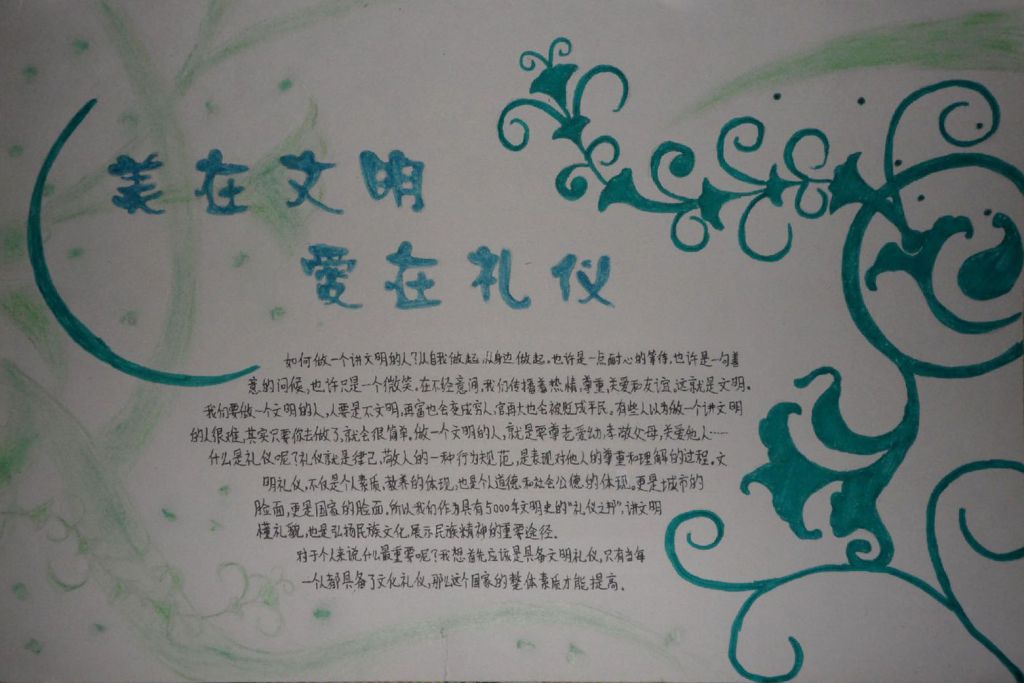 美在文明
爱在礼仪
如何做一个讲文明的人？从自我做起，从身边做起。也许是一点耐心的等待，也许是一句善
意的问候，也许只是一个微笑。在不经意间，我们传播着热情，尊重，关爱和友谊，这就是文明。
我们要做一个文明的人，人要是不文明，再富也会变成穷人，官再大也会被贬成平民。有些人以为做一个讲文明
的人很难，其实只要你去做了，就会很简单，做一个文明的人，就是要尊老爱幼，孝敬父母，关爱他人……
什么是礼仪呢？礼仪就是律己，敬人的一种行为规范，是表现对他人的尊重和理解的过程。文
明礼仪，不仅是个人素质，教养的体现，也是个人道德和社会公德的体现。更是城市的
脸面，更是国家的脸面。所以我们作为具有5000年文明史的“礼仪之邦”，讲文明
懂礼貌，也是弘扬民族文化，展示民族精神的重要途径。
对于个人来说，什么最重要呢？我想首先应该是具备文明礼仪，只有当每
一个人都具备了文化礼仪，那么这个国家的整体素质才能提高。